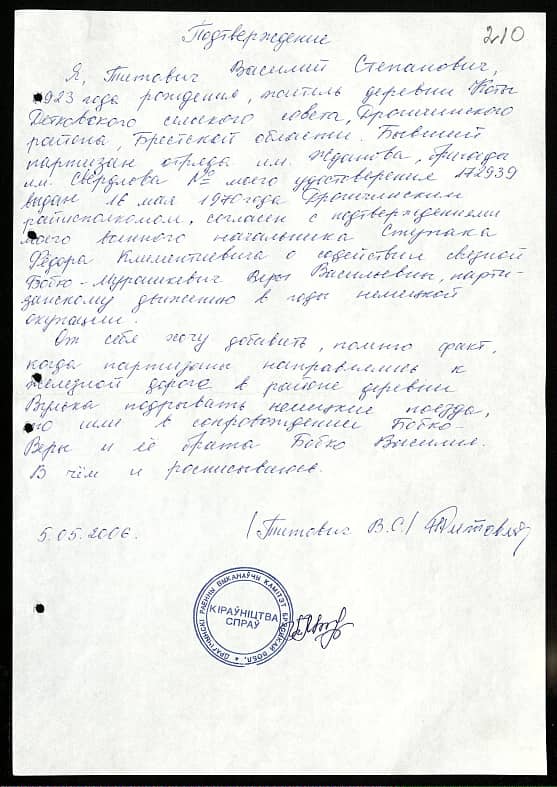 210
Подтверждение
Я, Титович Василий Степанович,
1923 года рождения, житель деревни Коты
Детковского сельского совета, Дрогичинского
района, Брестской области. Бывший
партизан отряда им. Жданова, бригада
им. Свердлова № моего удостоверения 172939
выдан 16 мая 1970 года Дрогичинским
райисполкомом, согласен с подтверждениями
моего военного начальника Ступака
Фёдора Климентиевича о содействии связной
Бобко-Мурашкевич Веры Васильевны, парти-
занскому движению в годы немецкой
окупации.
От себя хочу добавить, помню факт,
когда партизаны направлялись к
железной дороге в районе деревни
Вулька подрывать немецкие поезда,
то шли в сопровождении Бобко-
Веры и её брата Бобко Василия.
В чём и росписываюсь.
5.05.2006.
/Титович В.С./
КІРАЎНІЦТВА
СПРАЎ
ДРАГІЧЫНСКІ РАЁННЫ ВЫКАНАЎЧЫ КАМІТЭТ БРЭСЦКАЙ ВОБЛ.